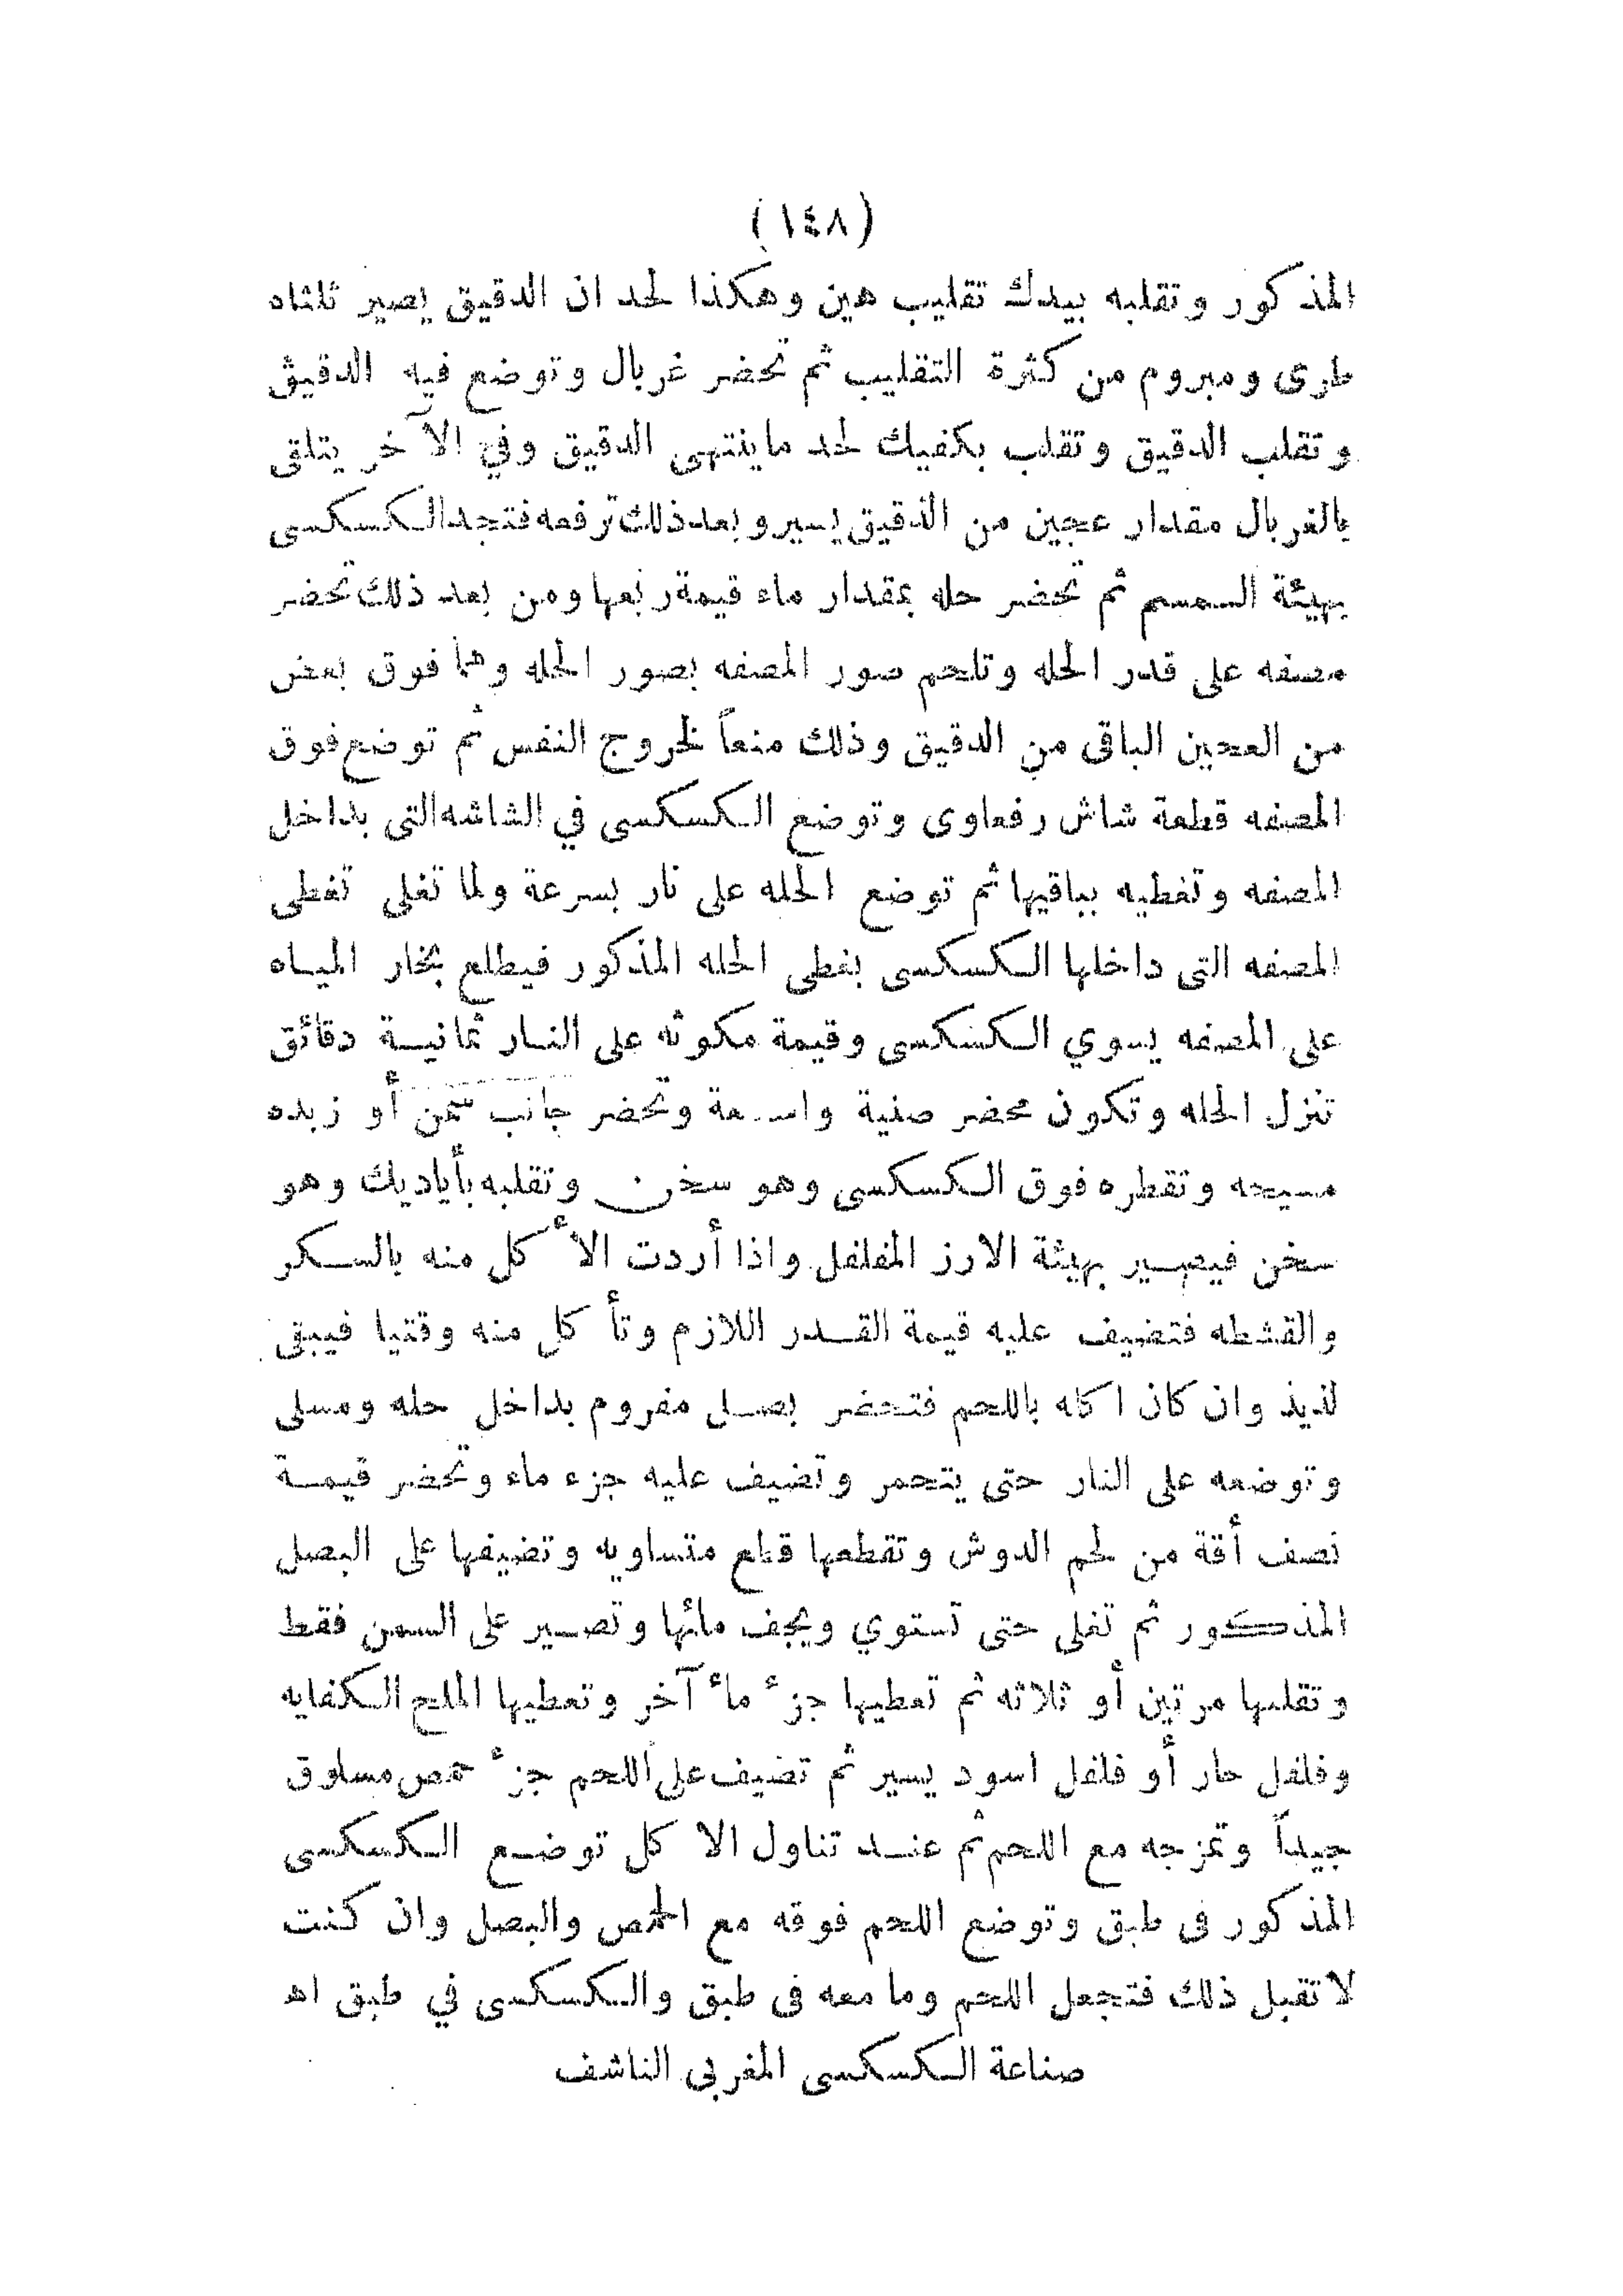 (١٤٨)
المذكور وتقلبه بيدك تقليب هين وهكذا لحد ان الدقيق يصير ثلثاه
طرى ومبروم من كثرة التقليب ثم تحضر غربال وتوضع فيه الدقيق
وتقلب الدقيق وتقلب بكفيك لحد ماينتهى الدقيق وفي الآخر يتلقى
بالغربال مقدار عجين من الدقيق يسير وبعد ذلك ترفعه فتجد الكسكسى
بهيئة السمسم ثم تحضر حله بمقدار ماء قيمة ربعها ومن بعد ذلك تحضر
مصفه على قدر الحله وتلحم صور المصفه بصور الحله وهما فوق بعض
من العجين الباقى من الدقيق وذلك منعاً لخروج النفس ثم توضع فوق
المصفه قطعة شاش رفعاوى وتوضع الكسكسى في الشاشه التى بداخل
المصفه وتغطيه بباقيها ثم توضع الحله على نار بسرعة ولما تغلى تغطى
المصفه التى داخلها الكسكسى بغطى الحله المذكور فيطلع بخار المياه
على المصفه يسوي الكسكسى وقيمة مكوثه على النار ثمانية دقائق
تنزل الحله وتكون محضر صنية واسعة وتحضر جانب سمن أو زبده
مسيحه وتقطره فوق الكسكسى وهو سخن وتقلبه بأياديك وهو
سخن فيصير بهيئة الارز المفلفل واذا أردت الأكل منه بالسكر
والقشطه فتضيف عليه قيمة القدر اللازم وتأكل منه وقتيا فيبقى
لذيذ وان كان اكله باللحم فتحضر بصل مفروم بداخل حله ومسلى
وتوضعه على النار حتى يتحمر وتضيف عليه جزء ماء وتحضر قيمة
نصف أقة من لحم الدوش وتقطعها قطع متساويه وتضيفها على البصل
المذكور ثم تغلى حتى تستوي ويجف مائها وتصير على السمن فقط
وتقلبها مرتين أو ثلاثه ثم تعطيها جزء ماء آخر وتعطيها الملح الكفايه
وفلفل حار أو فلفل اسود يسير ثم تضيف على اللحم جزء حمص مسلوق
جيداً وتمزجه مع اللحم ثم عند تناول الاكل توضع الكسكسى
المذكور فى طبق وتوضع اللحم فوقه مع الحمص والبصل وان كنت
لا تقبل ذلك فتجعل اللحم وما معه فى طبق والكسكسى في طبق اه
صناعة الكسكسى المغربى الناشف